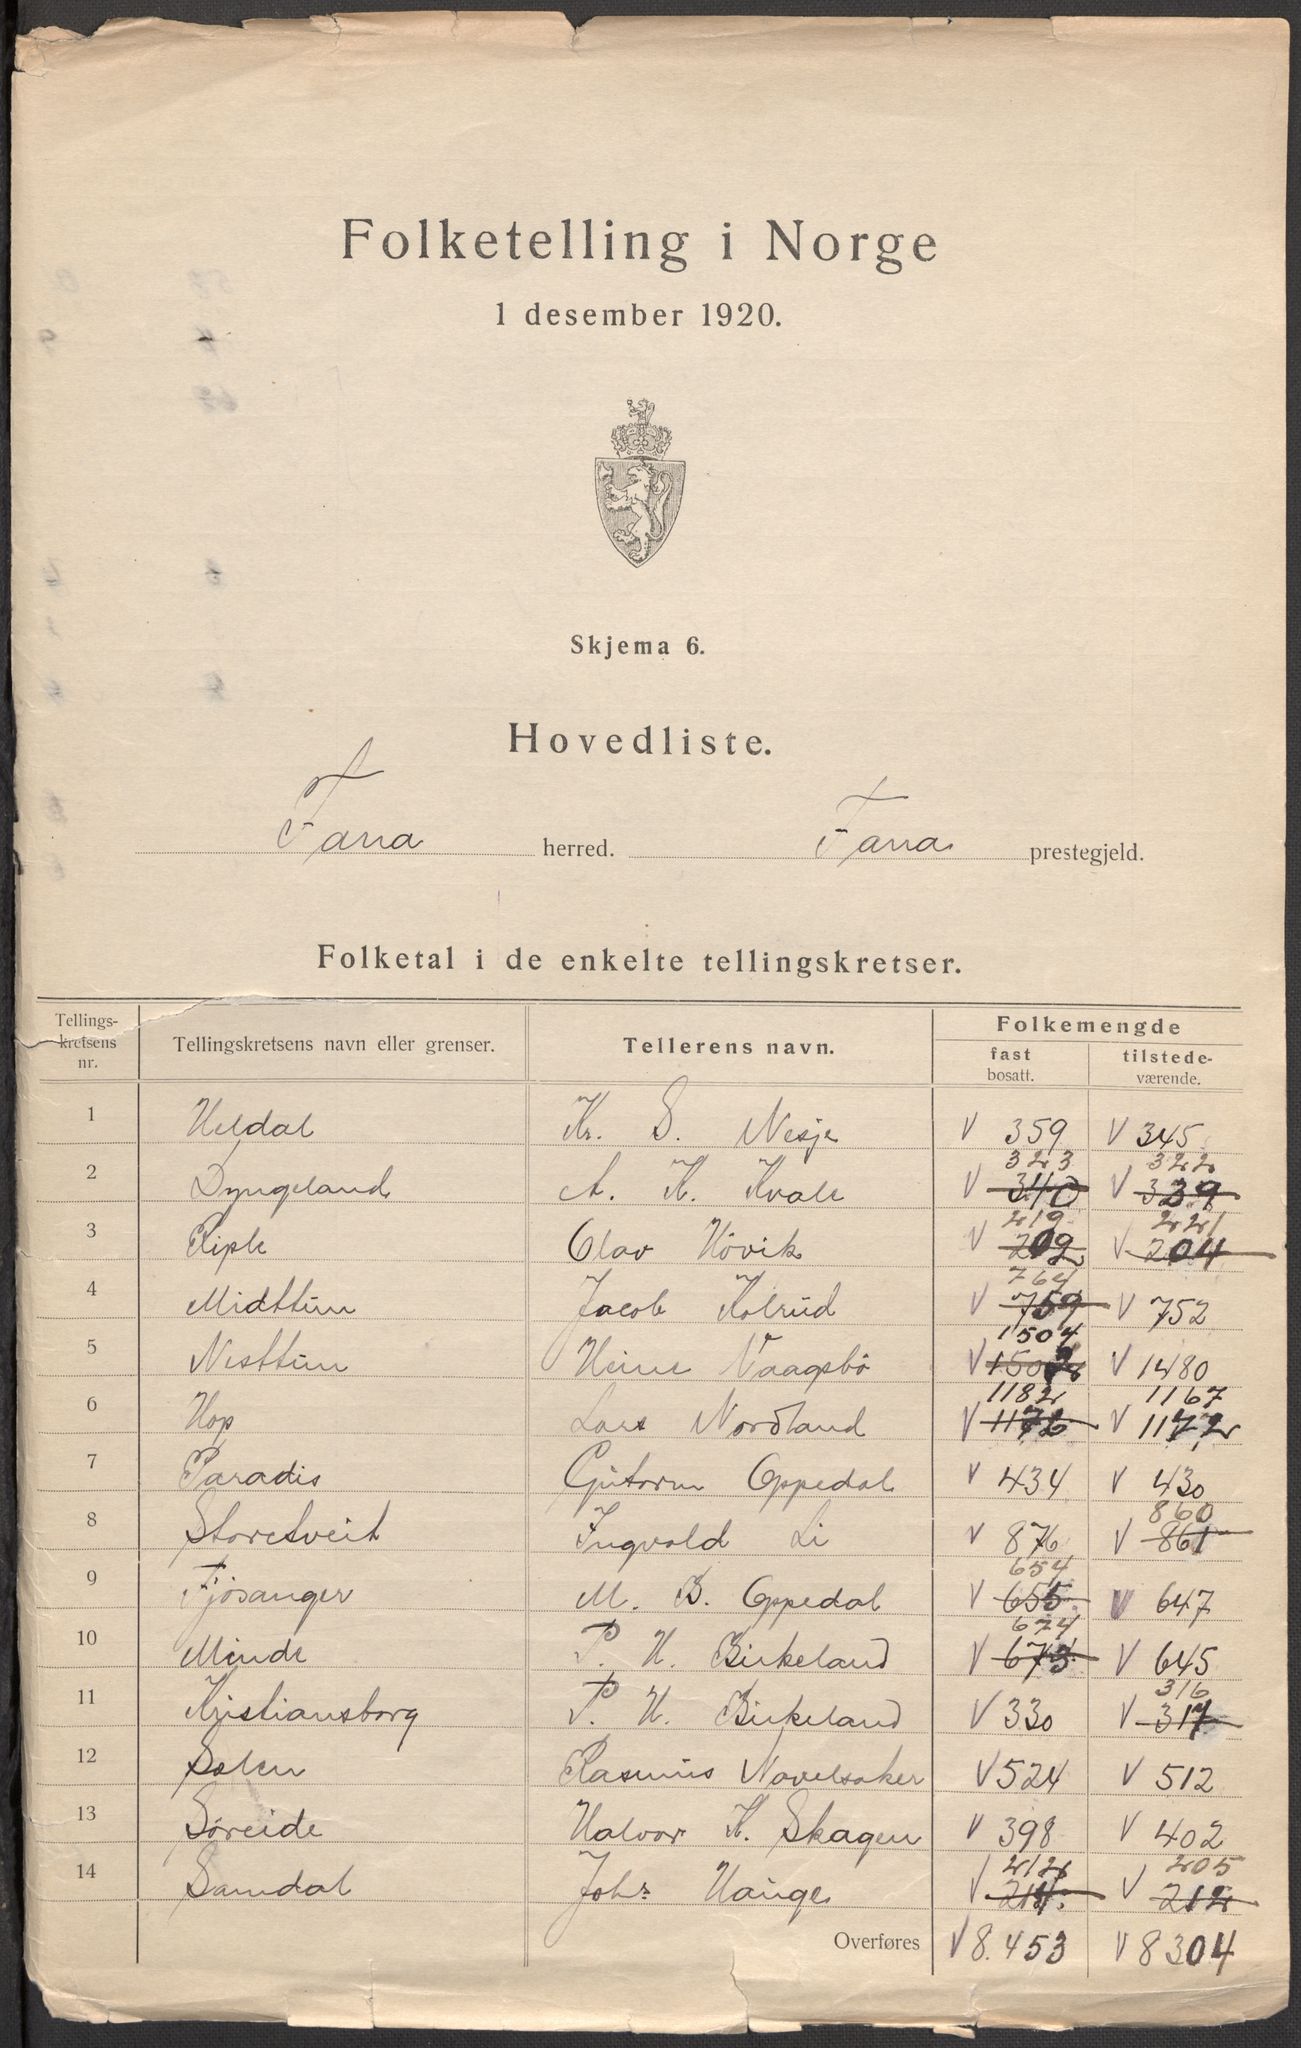 Folketelling i Norge
1 desember 1920.
Skjema 6.
Hovedliste.
Fana herred. Fana prestegjeld.
Folketal i de enkelte tellingskretser.
Tellings-kretsens nr. Tellingskretsens navn eller grenser. Tellerens navn. Folkemengde fast bosatt. tilstede-værende.
1 Heldal Kr. S. Nesje V 359 V 345
323 322
2 Dyngeland A. K. Kvale V 340 V 339
219 221
3 Riple Olav Hövik V 202 V 204
764
4 Midttun Jacob Kolrud V 759 V 752
1504
5 Nesttun Heine Vaagsbö V 1502 V 1480
1182 1167
6 Hop Lars Nordland V 1176 V 1172
7 Paradis Guttorm Oppedal V 434 V 430
860
8 Storetveit Ingvald Li V 876 V 861
654
9 Fjösanger M. B. Oppedal V 655 V 647
674
10 Minde P. H. Birkeland V 673 V 645
316
11 Kristiansborg P. H. Birkeland V 330 V 317
12 Sælen Rasmus Navelsaker V 524 V 512
13 Söreide Halvor K. Skagen V 398 V 402
212 205
14 Samdal Johs Hauge V 211 V 212
Overføres V 8.453 V 8304